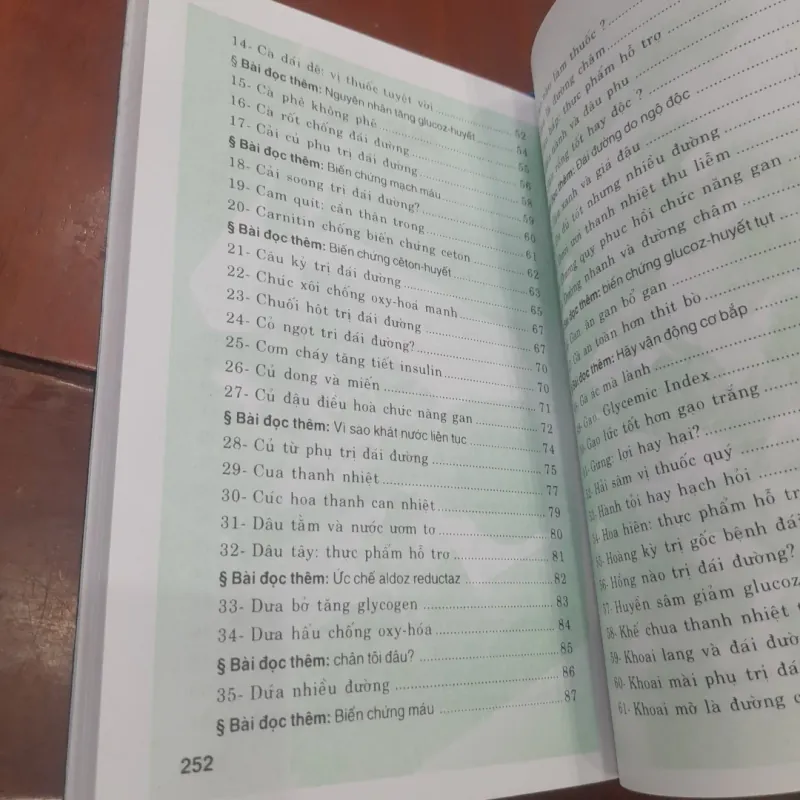 14- Cà dái dê: vị thuốc tuyệt vời ........ 52
§ Bài đọc thêm: Nguyên nhân tăng glucoz-huyết ........ 54
15- Cà phê không phê ........ 55
16- Cà rốt chống đái đường ........ 56
17- Cải củ phụ trị đái đường ........ 58
§ Bài đọc thêm: Biến chứng mạch máu ........ 59
18- Cải soong trị đái đường? ........ 60
19- Cam quít: cẩn thận trong ........ 61
20- Carnitin chống biến chứng ceton ........ 62
§ Bài đọc thêm: Biến chứng cêton-huyết ........ 63
21- Câu kỷ trị đái đường ........ 65
22- Chúc xôi chống oxy-hoá mạnh ........ 67
23- Chuối hột trị đái đường ........ 67
24- Cỏ ngọt trị đái đường? ........ 70
25- Cơm cháy tăng tiết insulin ........ 70
26- Củ dong và miến ........ 71
27- Củ đậu điều hoà chức năng gan ........ 72
§ Bài đọc thêm: Vì sao khát nước liên tục ........ 74
28- Củ từ phụ trị đái đường ........ 75
29- Cua thanh nhiệt ........ 77
30- Cúc hoa thanh can nhiệt ........ 79
31- Dâu tằm và nước ươm tơ ........ 80
32- Dâu tây: thực phẩm hỗ trợ ........ 81
§ Bài đọc thêm: Ức chế aldoz reductaz ........ 82
33- Dưa bở tăng glycogen ........ 83
34- Dưa hấu chống oxy-hóa ........ 84
§ Bài đọc thêm: chân tôi đâu? ........ 85
35- Dứa nhiều đường ........ 86
§ Bài đọc thêm: Biến chứng máu ........ 87
252
làm thuốc ?
đường châm
thực phẩm hỗ trợ
và đậu phụ
tốt hay độc ?
thêm: Đái đường do ngộ độc
xanh và giá đậu
đủ tốt nhưng nhiều đường
thanh nhiệt thu liễm
quy phục hồi chức năng gan
nhanh và đường châm
đọc thêm: biến chứng glucoz-huyết tụt
Gan ăn gan bổ gan
Gà an toàn hơn thịt bò
đọc thêm: Hãy vận động cơ bắp
Gà ác mà lành
Gạo. Glycemic Index
Gạo lức tốt hơn gạo trắng
Gừng: lợi hay hại?
Hải sâm vị thuốc quý
Hành tỏi hay hạch hỏi
54- Hoa hiên: thực phẩm hỗ
55- Hoàng kỳ trị gốc bệnh
56- Hồng nào trị đái đường?
57- Huyền sâm giảm
58- Khế chua thanh nhiệt
59- Khoai lang và đái
60- Khoai mài phụ trị
61- Khoai mỡ là đường